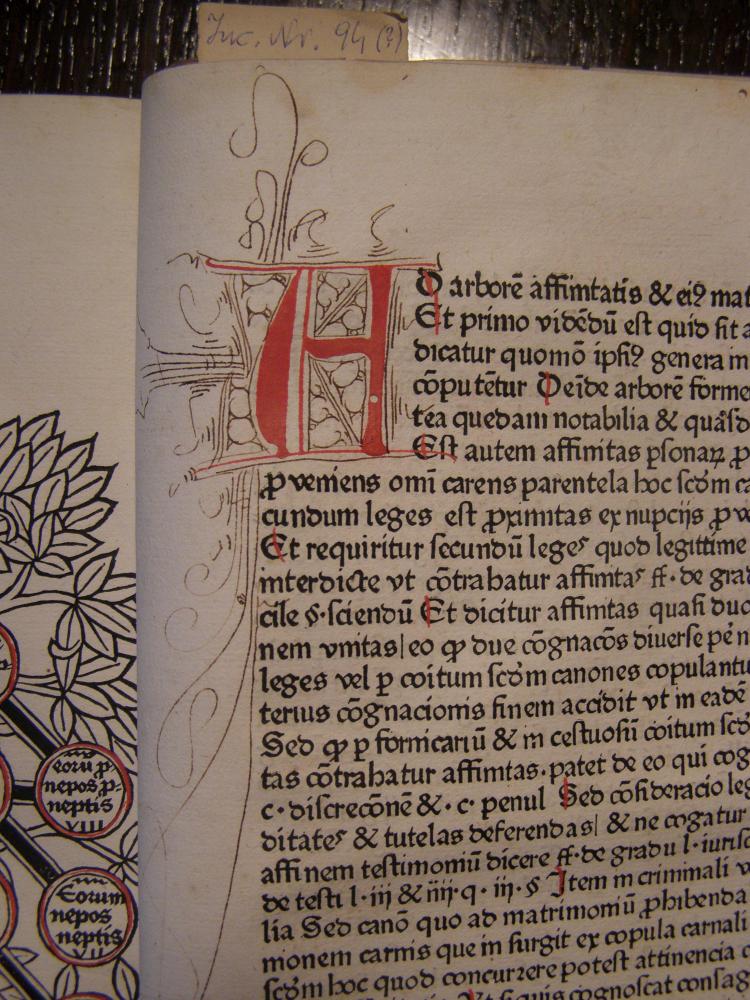 Inc. Nr. 94 (?)
AD arborē affinitatis & eiꝰ mat
Et primo vidēdū est quid sit a
dicatur quomō ipsiꝰ genera in
cōputētur Deīde arborē forme
tea quedam notabilia & quāsd
Est autem affinitas ꝑsonaꝝ ꝓ
ꝓveniens omī carens parentela hoc scdm ca
cundum leges est ꝓximitas ex nupcijs ꝓv
Et requiritur secundū leges quod legittime
interdicte vt cōtrahatur affinitas ff· de grad
cile §·sciendū Et dicitur affinitas quasi duo
nem vnitas|eo ꝙ due cōgnacōs diuerse ꝑ n
leges vel ꝑ coitum scdm canones copulantu
terius cōgnacionis finem accidit vt in eadē
Sed ꝙ ꝑ fornicariū & incestuosū coitum scd
tas cōtrahatur affinitas·patet de eo qui cog
c·discrecōnē &·c·penul Sed cōsideracio leg
ditates & tutelas deferendas| & ne cogatur
affinem testimoniū dicere ff·de gradu l·iurisc
de testi l·iij & iiij·q·iij·§ Item in criminali v
lia Sed canō quo ad matrimoniū ꝓhibenda
monem carnis que insurgit ex copula carnali
scdm hoc quod concurrere potest attinencia c
si quis cognoscat consag
eorū ꝓ-
nepos ꝓ-
neptis
VIII
Eorum
nepos
neptis
VII